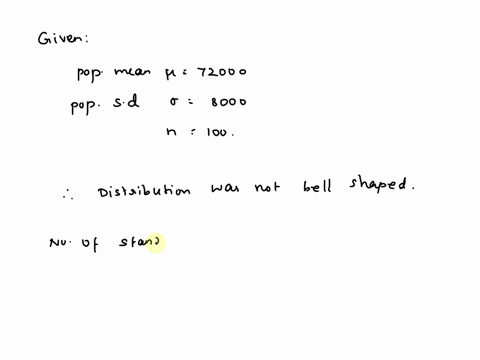 Given:
pop. mean μ = 72000
pop. s.d σ = 8000
n = 100.
∴ Distribution was not bell shaped.
No. of stan